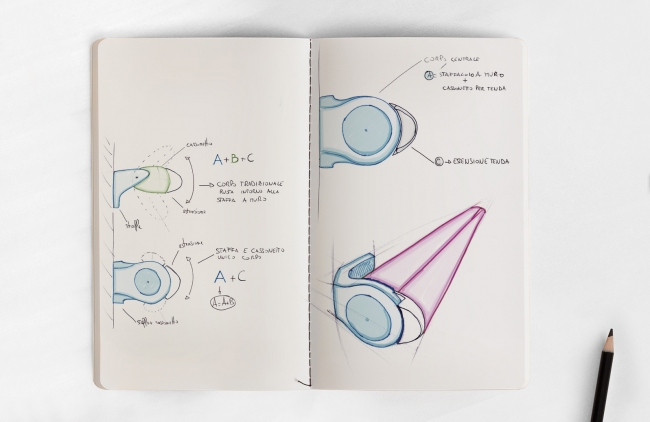 cassonetto
A+B+C
CORPO TRADIZIONALE
RUOTA INTORNO ALLA
STAFFA A MURO
estensione
staffa
estensione
STAFFA E CASSONETTO
UNICO CORPO
A+C
A=A+B
staffa cassonetto
CORPO CENTRALE
A= STAFFAGGIO A MURO
+
CASSONETTO PER TENDA
C → ESTENSIONE TENDA